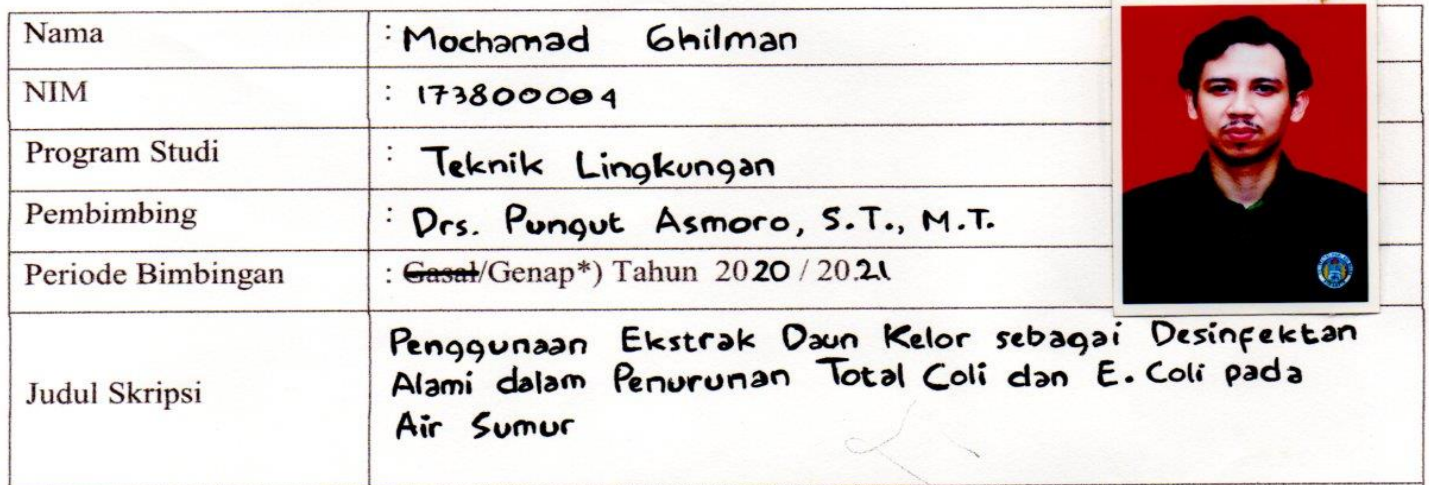 Nama : Mochamad Ghilman
NIM : 173800004
Program Studi : Teknik Lingkungan
Pembimbing : Drs. Pungut Asmoro, S.T., M.T.
Periode Bimbingan : Gasal/Genap*) Tahun 2020 / 2021
Penggunaan Ekstrak Daun Kelor sebagai Desinfektan
Judul Skripsi Alami dalam Penurunan Total Coli dan E. Coli pada
Air Sumur